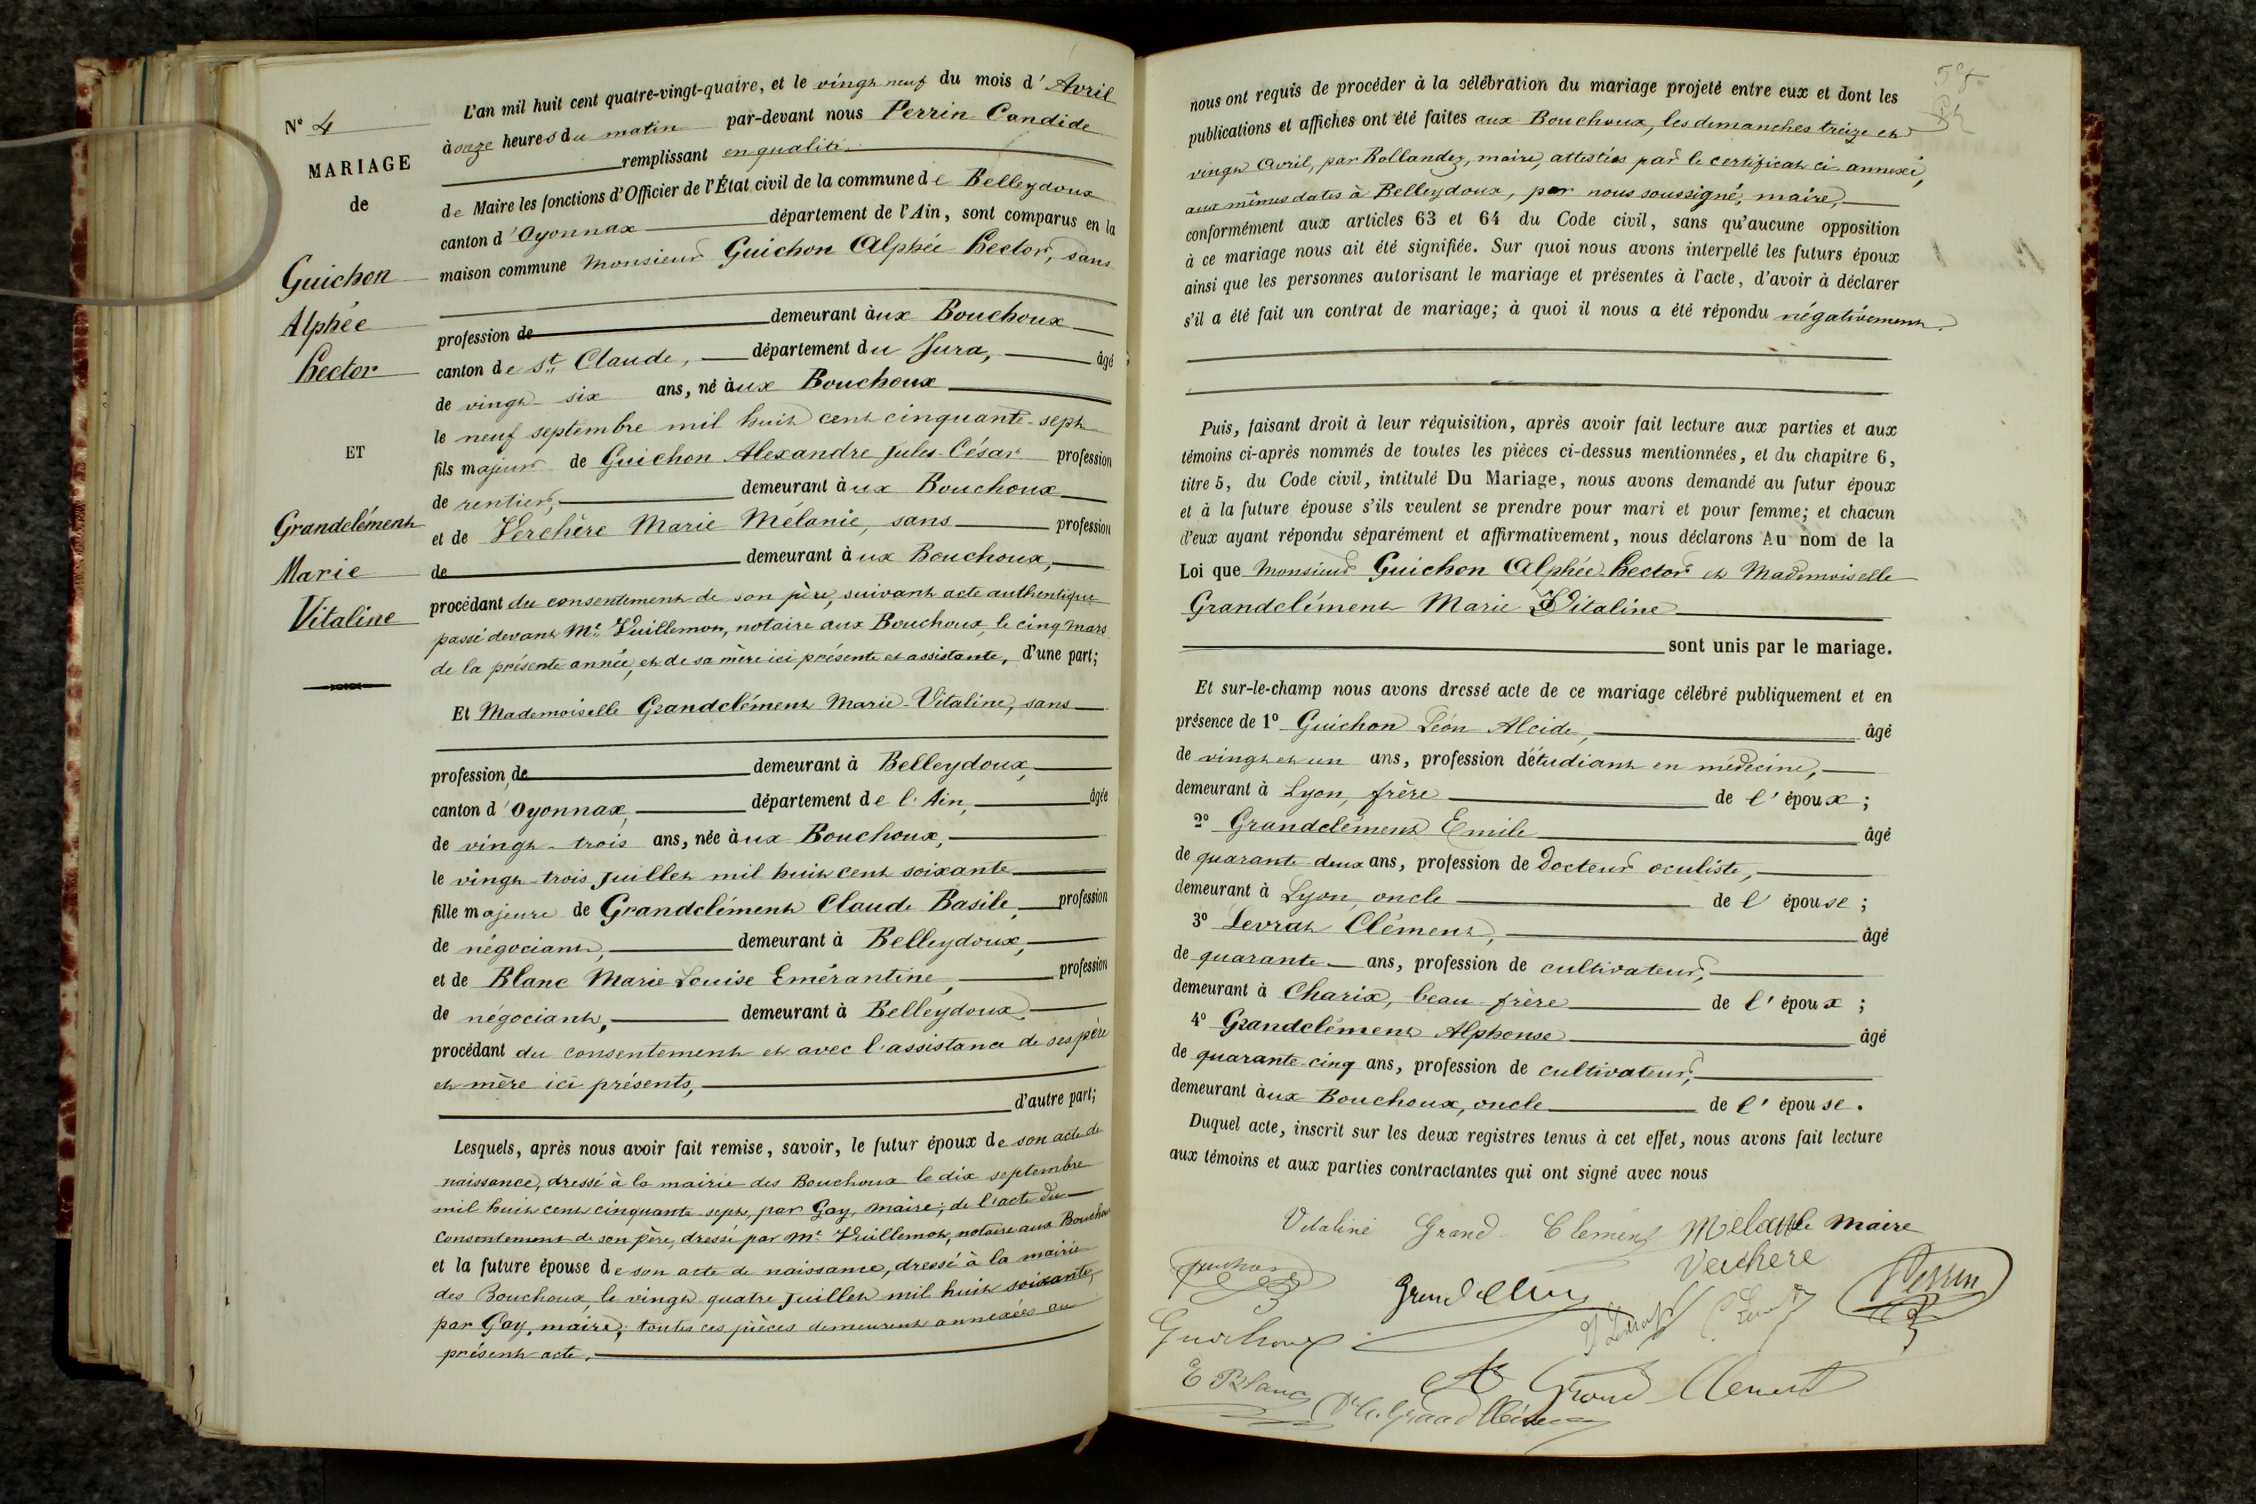 N° 4
MARIAGE
de
Guichon
Alphée
Hector
ET
Grandclément
Marie
Vitaline
L'an mil huit cent quatre-vingt-quatre, et le vingt neuf du mois d'Avril
à onze heures du matin par-devant nous Perrin Candide
remplissant en qualité
de Maire les fonctions d'Officier de l'État civil de la commune de Belleydoux
canton d'Oyonnax département de l'Ain, sont comparus en la
maison commune Monsieur Guichon Alphée Hector, sans
profession de demeurant à ux Bouchoux
canton de St Claude, département du Jura, âgé
de vingt-six ans, né à ux Bouchoux
le neuf septembre mil huit cent cinquante-sept
fils majeur de Guichon Alexandre Jules-César profession
de rentier, demeurant à ux Bouchoux
et de Verchère Marie Mélanie, sans profession
de demeurant à ux Bouchoux,
procédant du consentement de son père, suivant acte authentique
passé devant Me Vuillemot, notaire aux Bouchoux, le cinq mars
de la présente année, et de sa mère ici présente et assistante, d'une part;
Et Mademoiselle Grandclément Marie-Vitaline, sans
profession de demeurant à Belleydoux,
canton d'Oyonnax, département de l'Ain, âgée
de vingt-trois ans, née à ux Bouchoux,
le vingt-trois Juillet mil huit cent soixante
fille majeure de Grandclément Claude Basile, profession
de négociant, demeurant à Belleydoux,
et de Blanc Marie Louise Emérantine, profession
de négociant, demeurant à Belleydoux.
procédant du consentement et avec l'assistance de ses père
et mère ici présents,
d'autre part;
Lesquels, après nous avoir fait remise, savoir, le futur époux de son acte de
naissance, dressé à la mairie des Bouchoux le dix septembre
mil huit cent cinquante-sept, par Gay, maire; de l'acte du
consentement de son père, dressé par Me Vuillemot, notaire aux Bouchoux
et la future épouse de son acte de naissance, dressé à la mairie
des Bouchoux, le vingt quatre Juillet mil huit soixante,
par Gay, maire; toutes ces pièces demeurent annexées au
présent acte.
nous ont requis de procéder à la célébration du mariage projeté entre eux et dont les
publications et affiches ont été faites aux Bouchoux, les dimanches treize et
vingt Avril, par Rollandez, maire, attestées par le certificat ci-annexé,
aux mêmes dates à Belleydoux, par nous soussigné, maire,
conformément aux articles 63 et 64 du Code civil, sans qu'aucune opposition
à ce mariage nous ait été signifiée. Sur quoi nous avons interpellé les futurs époux
ainsi que les personnes autorisant le mariage et présentes à l'acte, d'avoir à déclarer
s'il a été fait un contrat de mariage; à quoi il nous a été répondu négativement.
Puis, faisant droit à leur réquisition, après avoir fait lecture aux parties et aux
témoins ci-après nommés de toutes les pièces ci-dessus mentionnées, et du chapitre 6,
titre 5, du Code civil, intitulé Du Mariage, nous avons demandé au futur époux
et à la future épouse s'ils veulent se prendre pour mari et pour femme; et chacun
d'eux ayant répondu séparément et affirmativement, nous déclarons Au nom de la
Loi que Monsieur Guichon Alphée-Hector et Mademoiselle
Grandclément Marie Vitaline
sont unis par le mariage.
Et sur-le-champ nous avons dressé acte de ce mariage célébré publiquement et en
présence de 1° Guichon Léon Alcide, âgé
de vingt et un ans, profession d'étudiant en médecine,
demeurant à Lyon, frère de l'époux;
2° Grandclément Emile âgé
de quarante-deux ans, profession de Docteur oculiste,
demeurant à Lyon, oncle de l'épouse;
3° Levrat Clément, âgé
de quarante ans, profession de cultivateur,
demeurant à Charix, beau-frère de l'époux;
4° Grandclément Alphonse âgé
de quarante-cinq ans, profession de cultivateur,
demeurant à ux Bouchoux, oncle de l'épouse.
Duquel acte, inscrit sur les deux registres tenus à cet effet, nous avons fait lecture
aux témoins et aux parties contractantes qui ont signé avec nous
Vitaline Grand Clément Mélanie Maire
Verchere
Perrin
Guichon
E Blanc
Grand Clement